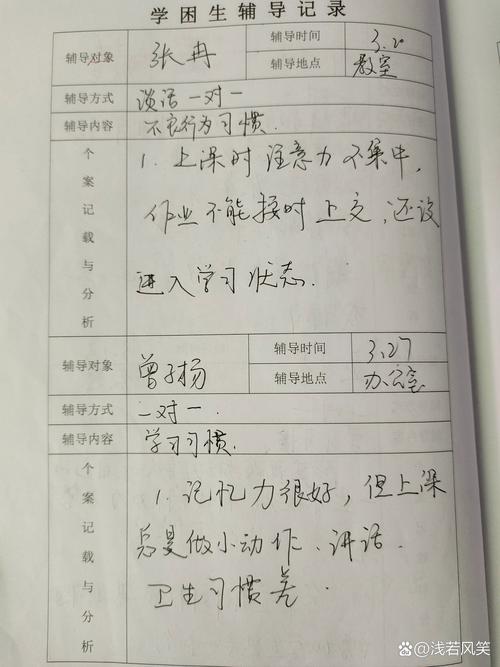 学困生辅导记录
辅导对象 张冉 辅导时间 3.20
辅导地点 教室
辅导方式 谈话 一对一
辅导内容 不良行为习惯.
个案记载与分析
1. 上课时注意力不集中,
作业不能按时上交,还没
进入学习状态.
辅导对象 曾子扬 辅导时间 3.27
辅导地点 办公室
辅导方式 一对一.
辅导内容 学习习惯.
个案记载与分析
1. 记忆力很好,但上课
总是做小动作、讲话.
卫生习惯差.
百家号/浅若风笑